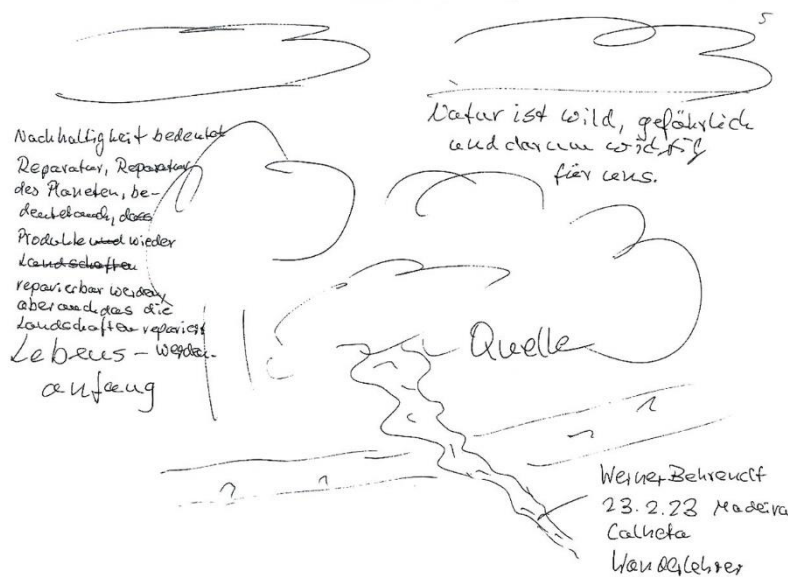 5
Nachhaltigkeit bedeutet
Reparatur, Reparatur
des Planeten, be-
deutet auch, dass
Produkte und wieder
Landschaften
reparierbar werden,
aber auch das die
Landschaften repariert
werden.
Lebens-
anfang
Natur ist wild, gefährlich
und darum wichtig
für uns.
Quelle
Werner Behrendt
23.2.23 Madeira
Calheta